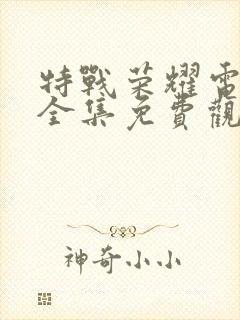 特戰荣耀電
全集免費觀
神奇小小